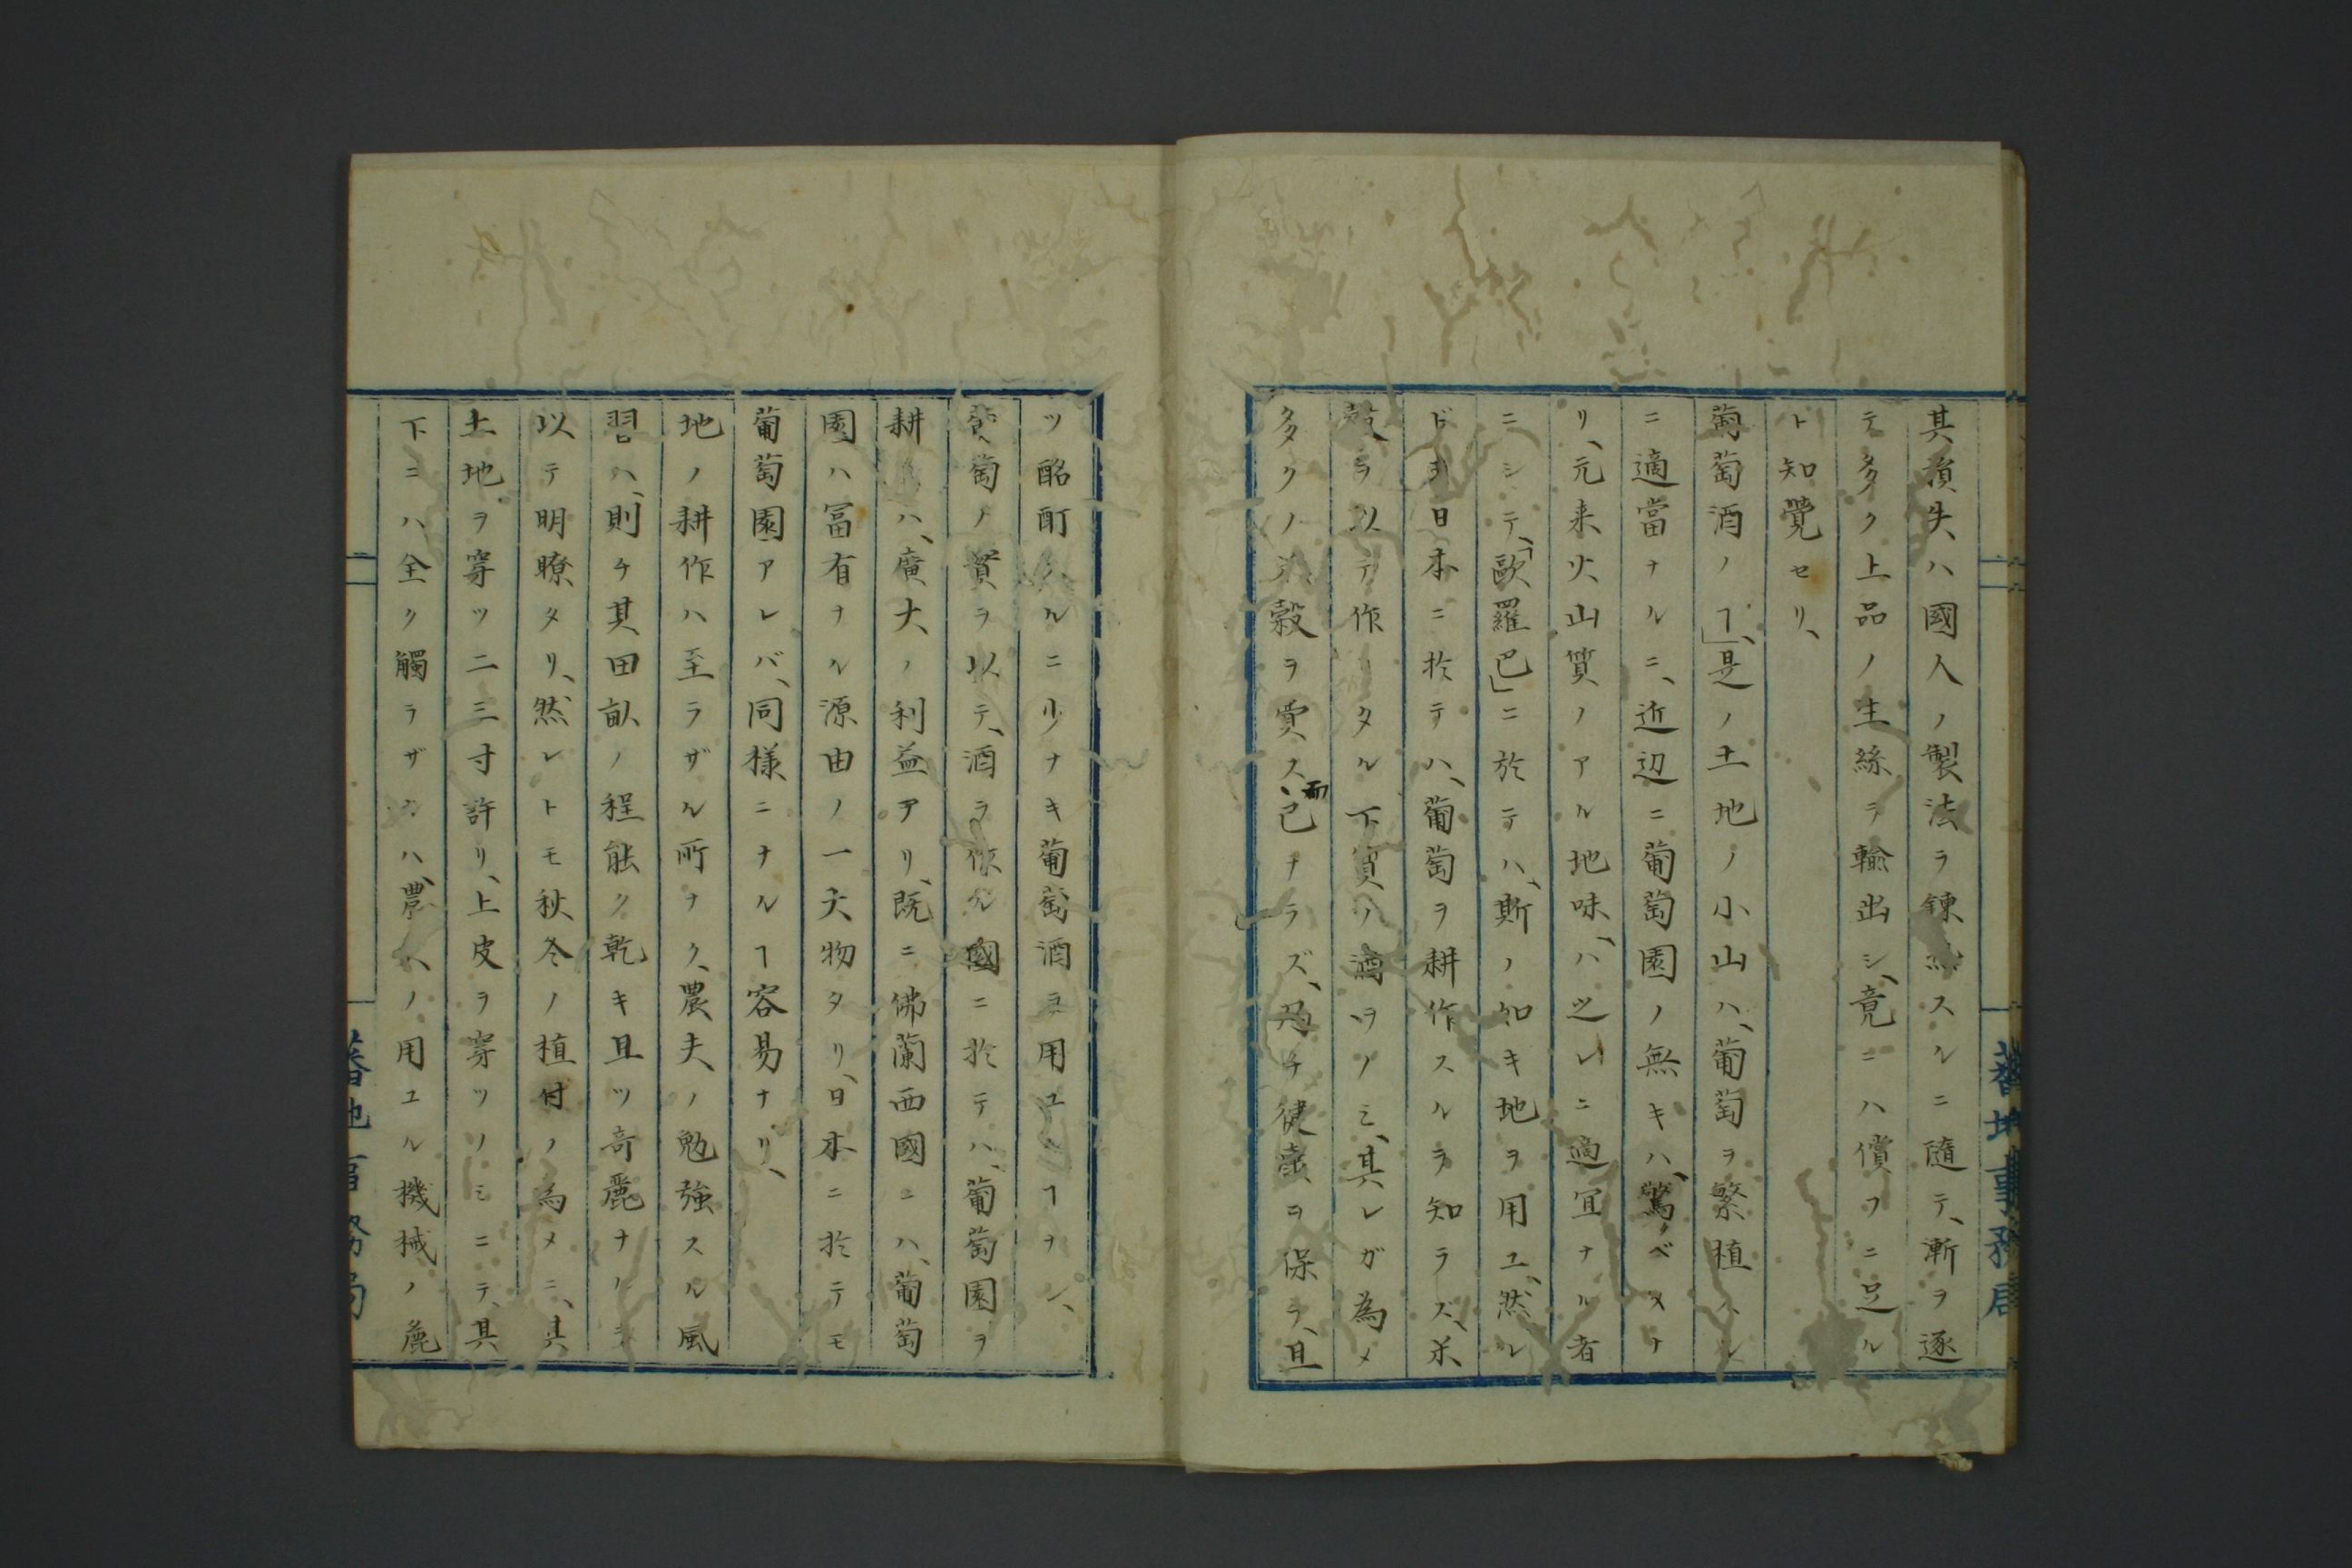 其損失ハ國人ノ製法ヲ錬熟スルニ隨テ、漸ヲ逐
テ多ク上品ノ生絲ヲ輸出シ、竟ニハ償フニ足ル
ト知覺セリ、
葡萄酒ノヿ」、是ノ土地ノ小山ハ、葡萄ヲ繁植スル
ニ適當ナルニ、近辺ニ葡萄園ノ無キハ、驚クベキナ
リ、元来火山質ノアル地味ハ、之レニ適宜ナル者
ニシテ、「歐羅巴」ニ於テハ、斯ノ如キ地ヲ用ユ、然レ
ドモ日本ニ於テハ、葡萄ヲ耕作スルヲ知ラズ、米
穀ヲ以テ作リタル下質ノ酒ヲノミ、其レガ為メ
多クノ米穀ヲ費ス、而已ナラズ、乃チ健康ヲ保ラ、且
ツ酩酊スルニ少ナキ葡萄酒ヲ用ユルヿナシ、
葡萄ノ實ヲ以テ、酒ヲ作ル國ニ於テハ、葡萄園ヲ
耕スハ、廣大ノ利益アリ、既ニ佛蘭西國ニハ、葡萄
園ハ冨有ナル源由ノ一大物タリ、日本ニ於テモ
葡萄園アレバ、同様ニナルヿ容易ナリ、
地ノ耕作ハ至ラザル所ナク、農夫ノ勉強スル風
習ハ、則チ其田畝ノ程能ク乾キ且ツ奇麗ナルヲ
以テ明瞭タリ、然レトモ秋冬ノ植付ノ為メニ、其
土地ヲ穿ツ二三寸許リ、上皮ヲ穿ツノミニテ、其
下ニハ全ク觸ラザルハ、農人ノ用ユル機械ノ麁
蕃地事務局
蕃地事務局